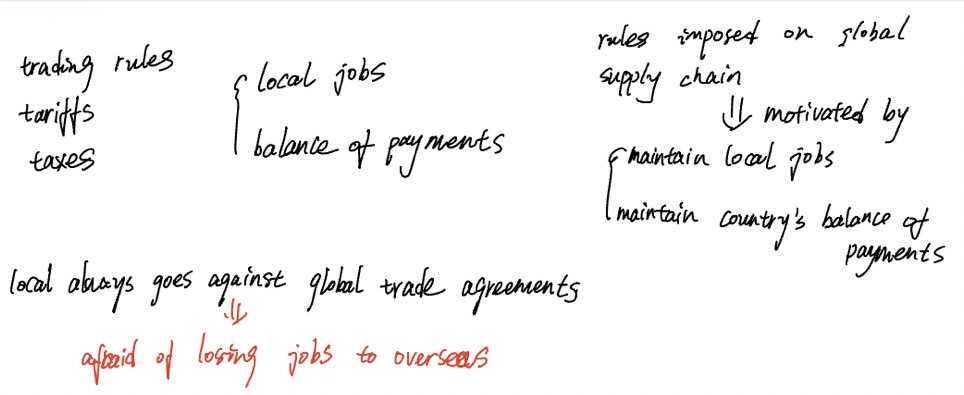 trading rules
tariffs
taxes
local jobs
balance of payments
rules imposed on global
supply chain
⇓ motivated by
maintain local jobs
maintain country's balance of
payments
local always goes against global trade agreements
⇓
afraid of losing jobs to overseas